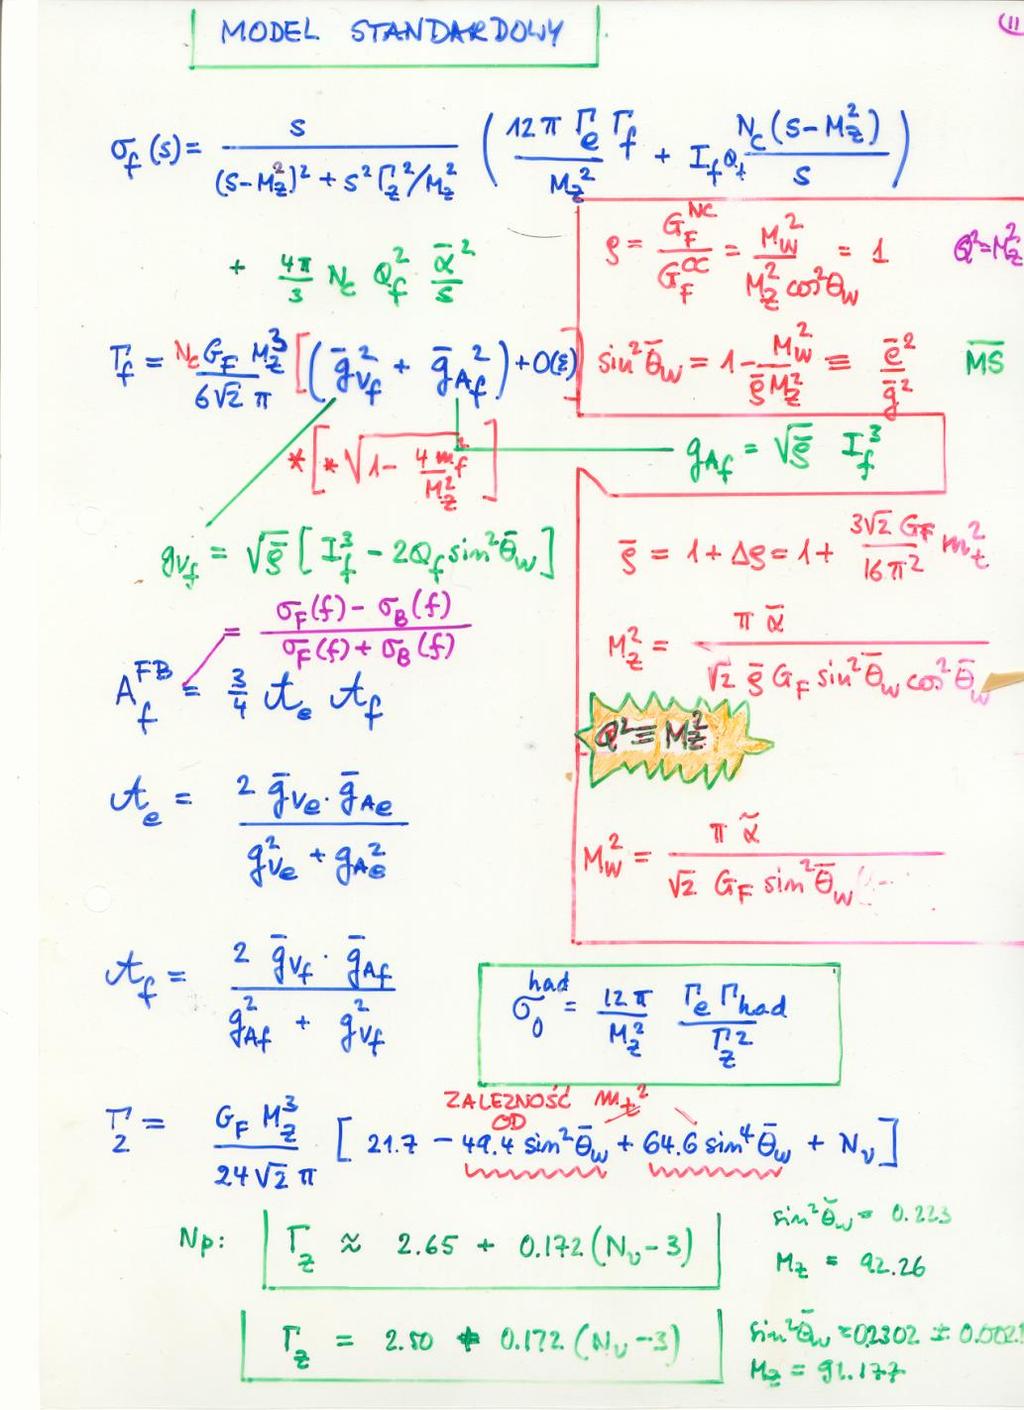 MODEL STANDARDOWY
(11
σ_f(s) = s / ((s-M_Z²)² + s²Γ_Z²/M_Z²) ( 12π Γ_e Γ_f / M_Z² + I_f Q_f N_c(s-M_Z²) / s )
+ 4π/3 N_c Q_f² ᾱ²/s
ρ = G_F^NC / G_F^CC = M_W² / (M_Z² cos²θ_W) = 1
Q²=M_Z²
Γ_f = N_c G_F M_Z³ / (6√2 π) [(ḡ_Vf² + ḡ_Af²) + O(ε)]
* [* √(1 - 4m_f²/M_Z²)]
sin²θ̄_W = 1 - M_W² / (ρ̄ M_Z²) ≡ ē²/ḡ²
M̅S̅
g_Af = √ρ̄ I_f³
g_Vf = √ρ̄ [I_f³ - 2Q_f sin²θ̄_W]
ρ̄ = 1 + Δρ = 1 + 3√2 G_F / 16π² m_t²
= (σ_F(f) - σ_B(f)) / (σ_F(f) + σ_B(f))
A_f^FB = 3/4 𝒜_e 𝒜_f
M_Z² = π ᾱ / (√2 ρ̄ G_F sin²θ̄_W cos²θ̄_W)
Q² ≡ M_Z²
𝒜_e = 2 ḡ_Ve · ḡ_Ae / (g_Ve² + g_Ae²)
M_W² = π α̃ / (√2 G_F sin²θ̄_W
𝒜_f = 2 ḡ_Vf · ḡ_Af / (g_Af² + g_Vf²)
σ_0^had = 12π/M_Z² Γ_e Γ_had / Γ_Z²
ZALEZNOŚĆ m_t²
OD
Γ_Z = G_F M_Z³ / (24√2 π) [21.7 - 49.4 sin²θ̄_W + 64.6 sin⁴θ̄_W + N_ν]
Np: Γ_Z ≈ 2.65 + 0.172 (N_ν - 3)
sin²θ̄_W = 0.223
M_Z = 92.26
Γ_Z = 2.50 + 0.172 (N_ν - 3)
sin²θ̄_W = 0.2302 ± 0.002
M_Z = 91.177